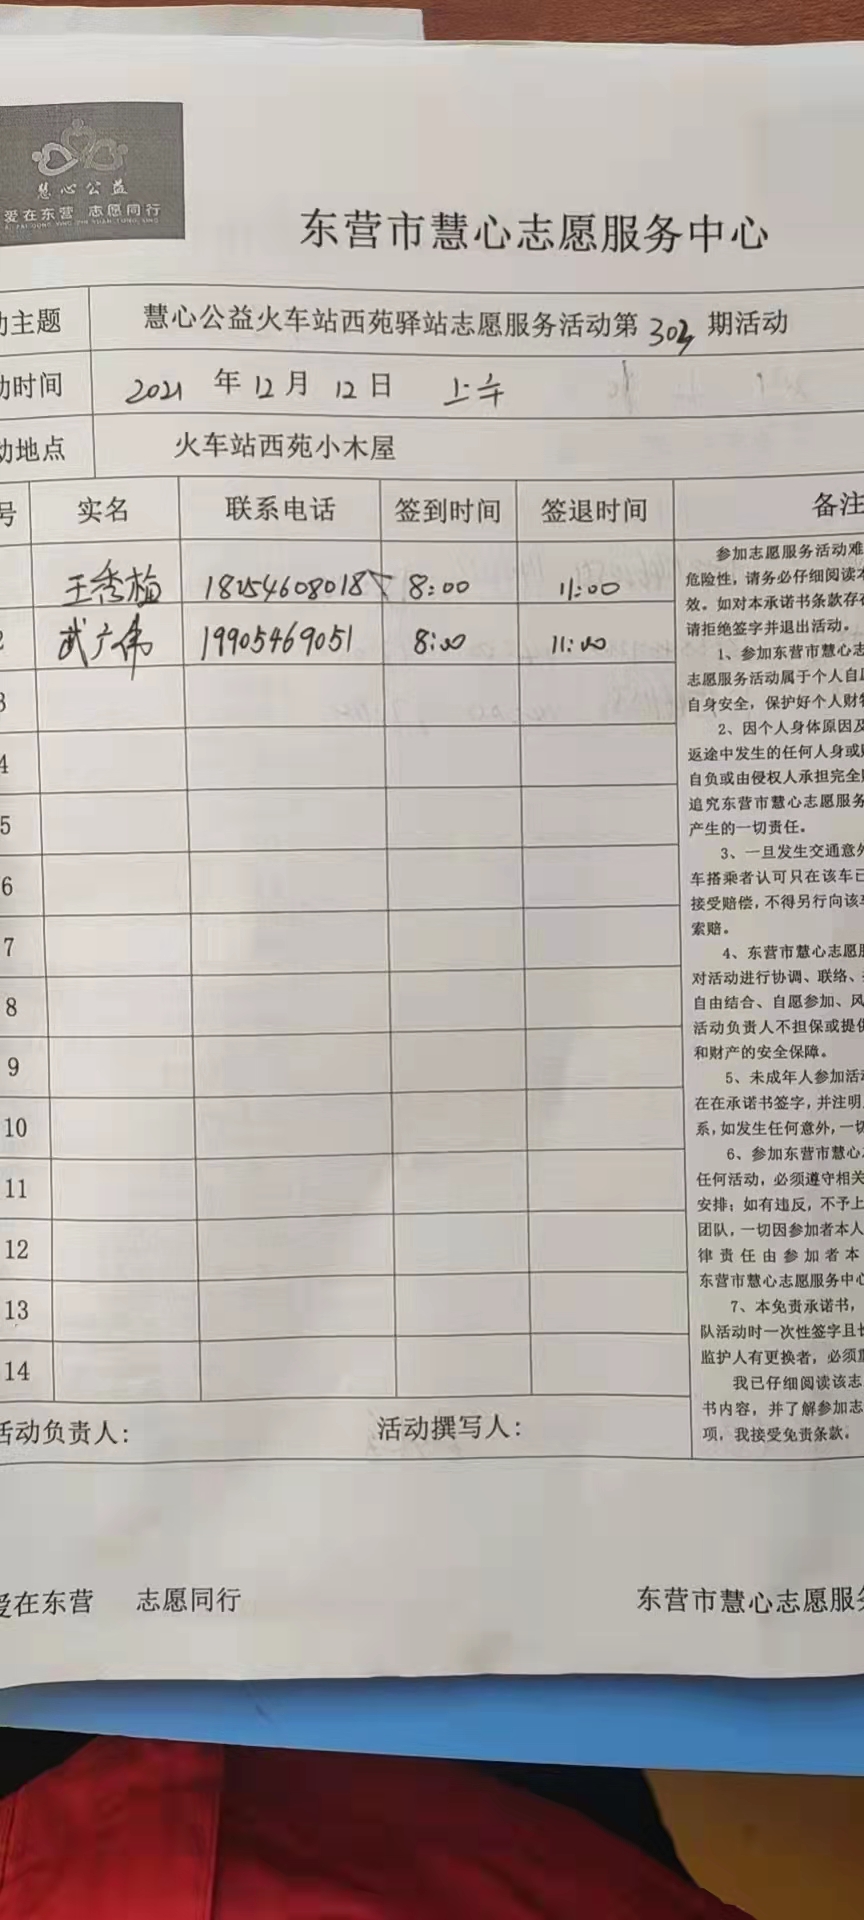 慧心公益
爱在东营 志愿同行
东营市慧心志愿服务中心
动主题 慧心公益火车站西苑驿站志愿服务活动第 303 期活动
动时间 2021 年 12 月 12 日 上午
动地点 火车站西苑小木屋
号 实名 联系电话 签到时间 签退时间 备注
王秀梅 18254608018 8:00 11:00
2 武广伟 19905469051 8:00 11:00
3
4
5
6
7
8
9
10
11
12
13
14
参加志愿服务活动难
危险性，请务必仔细阅读本
效。如对本承诺书条款存在
请拒绝签字并退出活动。
1、参加东营市慧心志
志愿服务活动属于个人自愿
自身安全，保护好个人财物
2、因个人身体原因及
返途中发生的任何人身或财
自负或由侵权人承担完全
追究东营市慧心志愿服务
产生的一切责任。
3、一旦发生交通意外
车搭乘者认可只在该车已
接受赔偿，不得另行向该车
索赔。
4、东营市慧心志愿服
对活动进行协调、联络、
自由结合、自愿参加、风
活动负责人不担保或提供
和财产的安全保障。
5、未成年人参加活动
在在承诺书签字，并注明
系，如发生任何意外，一切
6、参加东营市慧心
任何活动，必须遵守相关
安排；如有违反，不予上
团队，一切因参加者本人
律责任由参加者本
东营市慧心志愿服务中心
7、本免责承诺书，
队活动时一次性签字且长
监护人有更换者，必须重
我已仔细阅读该志
书内容，并了解参加志
项，我接受免责条款。
活动负责人： 活动撰写人：
爱在东营 志愿同行 东营市慧心志愿服务